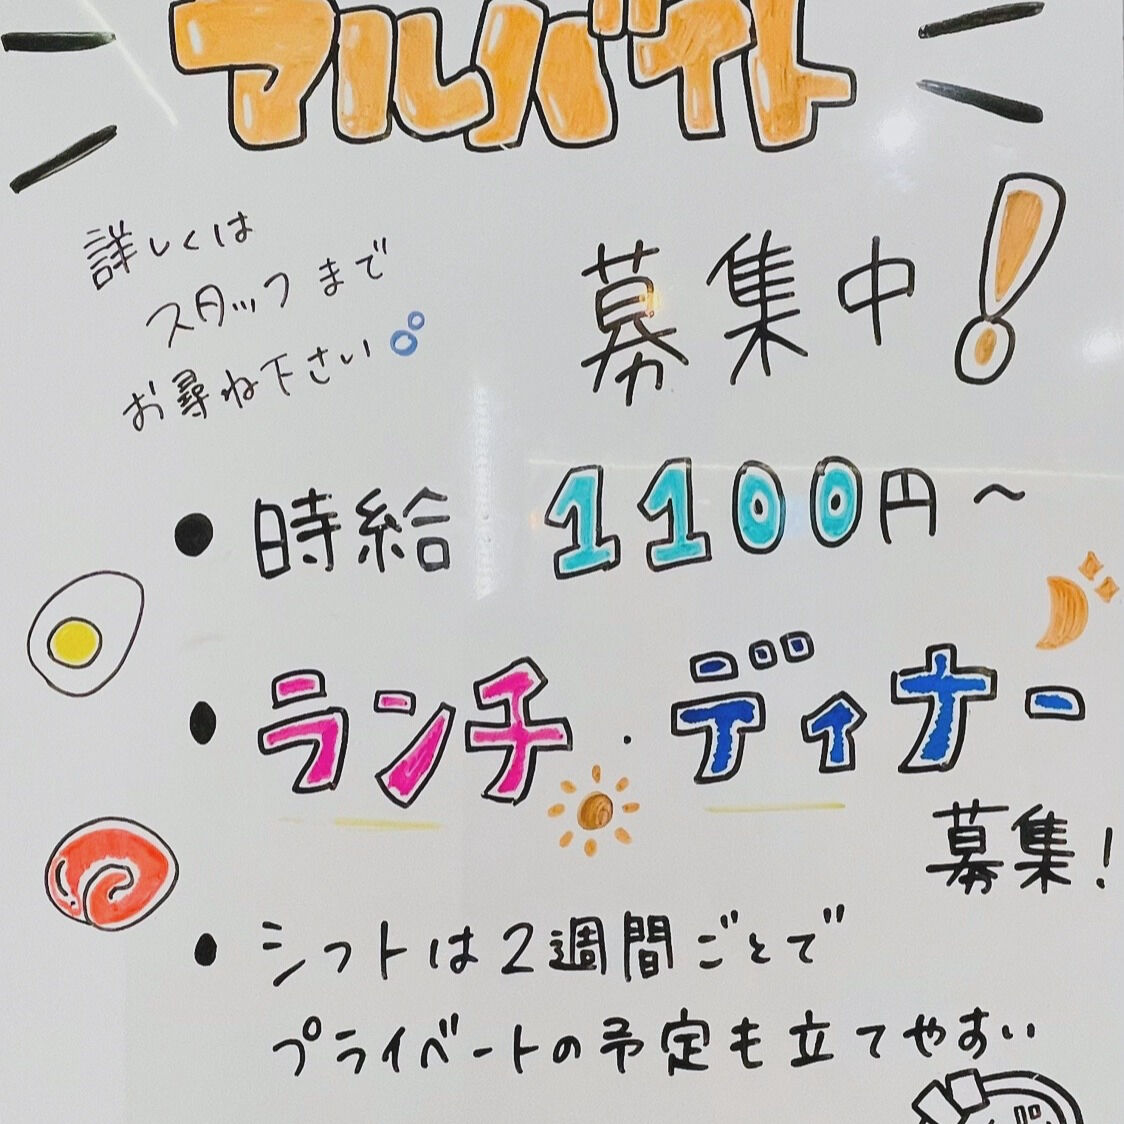 アルバイト
募集中!
詳しくは
スタッフまで
お尋ね下さい
● 時給 1100円〜
● ランチ・ディナー
募集!
● シフトは2週間ごとで
プライベートの予定も立てやすい